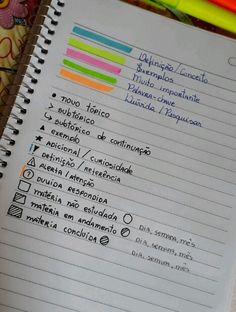 Definição/Conceito
Exemplos
Muito importante
Palavra-chave
Dúvida/Pesquisar
• novo tópico
> subtópico
↳ subtópico de continuação
▲ exemplo
★ adicional/curiosidade
definição/referência
⚠ alerta/atenção
duvida respondida
matéria não estudada ○ dia, semana, mês
matéria em andamento dia, semana, mês
matéria concluída dia, semana, mês